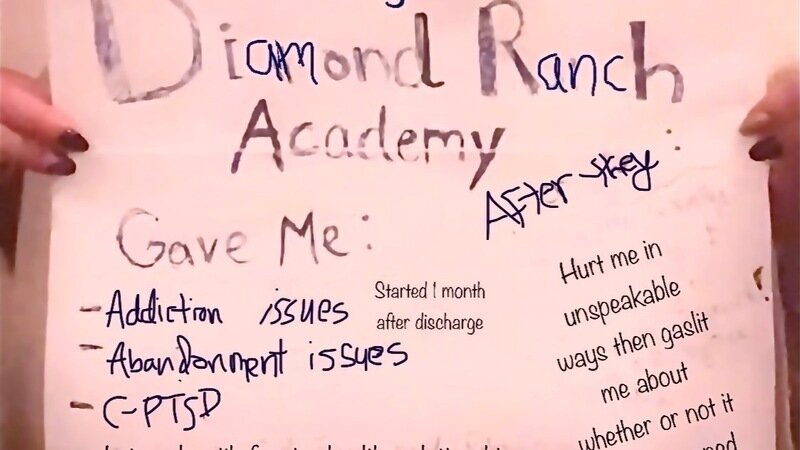 Diamond Ranch
Academy
After they:
Gave Me:
- Addiction issues
Started 1 month
after discharge
- Abandonment issues
- C-PTSD
Hurt me in
unspeakable
ways then gaslit
me about
whether or not it